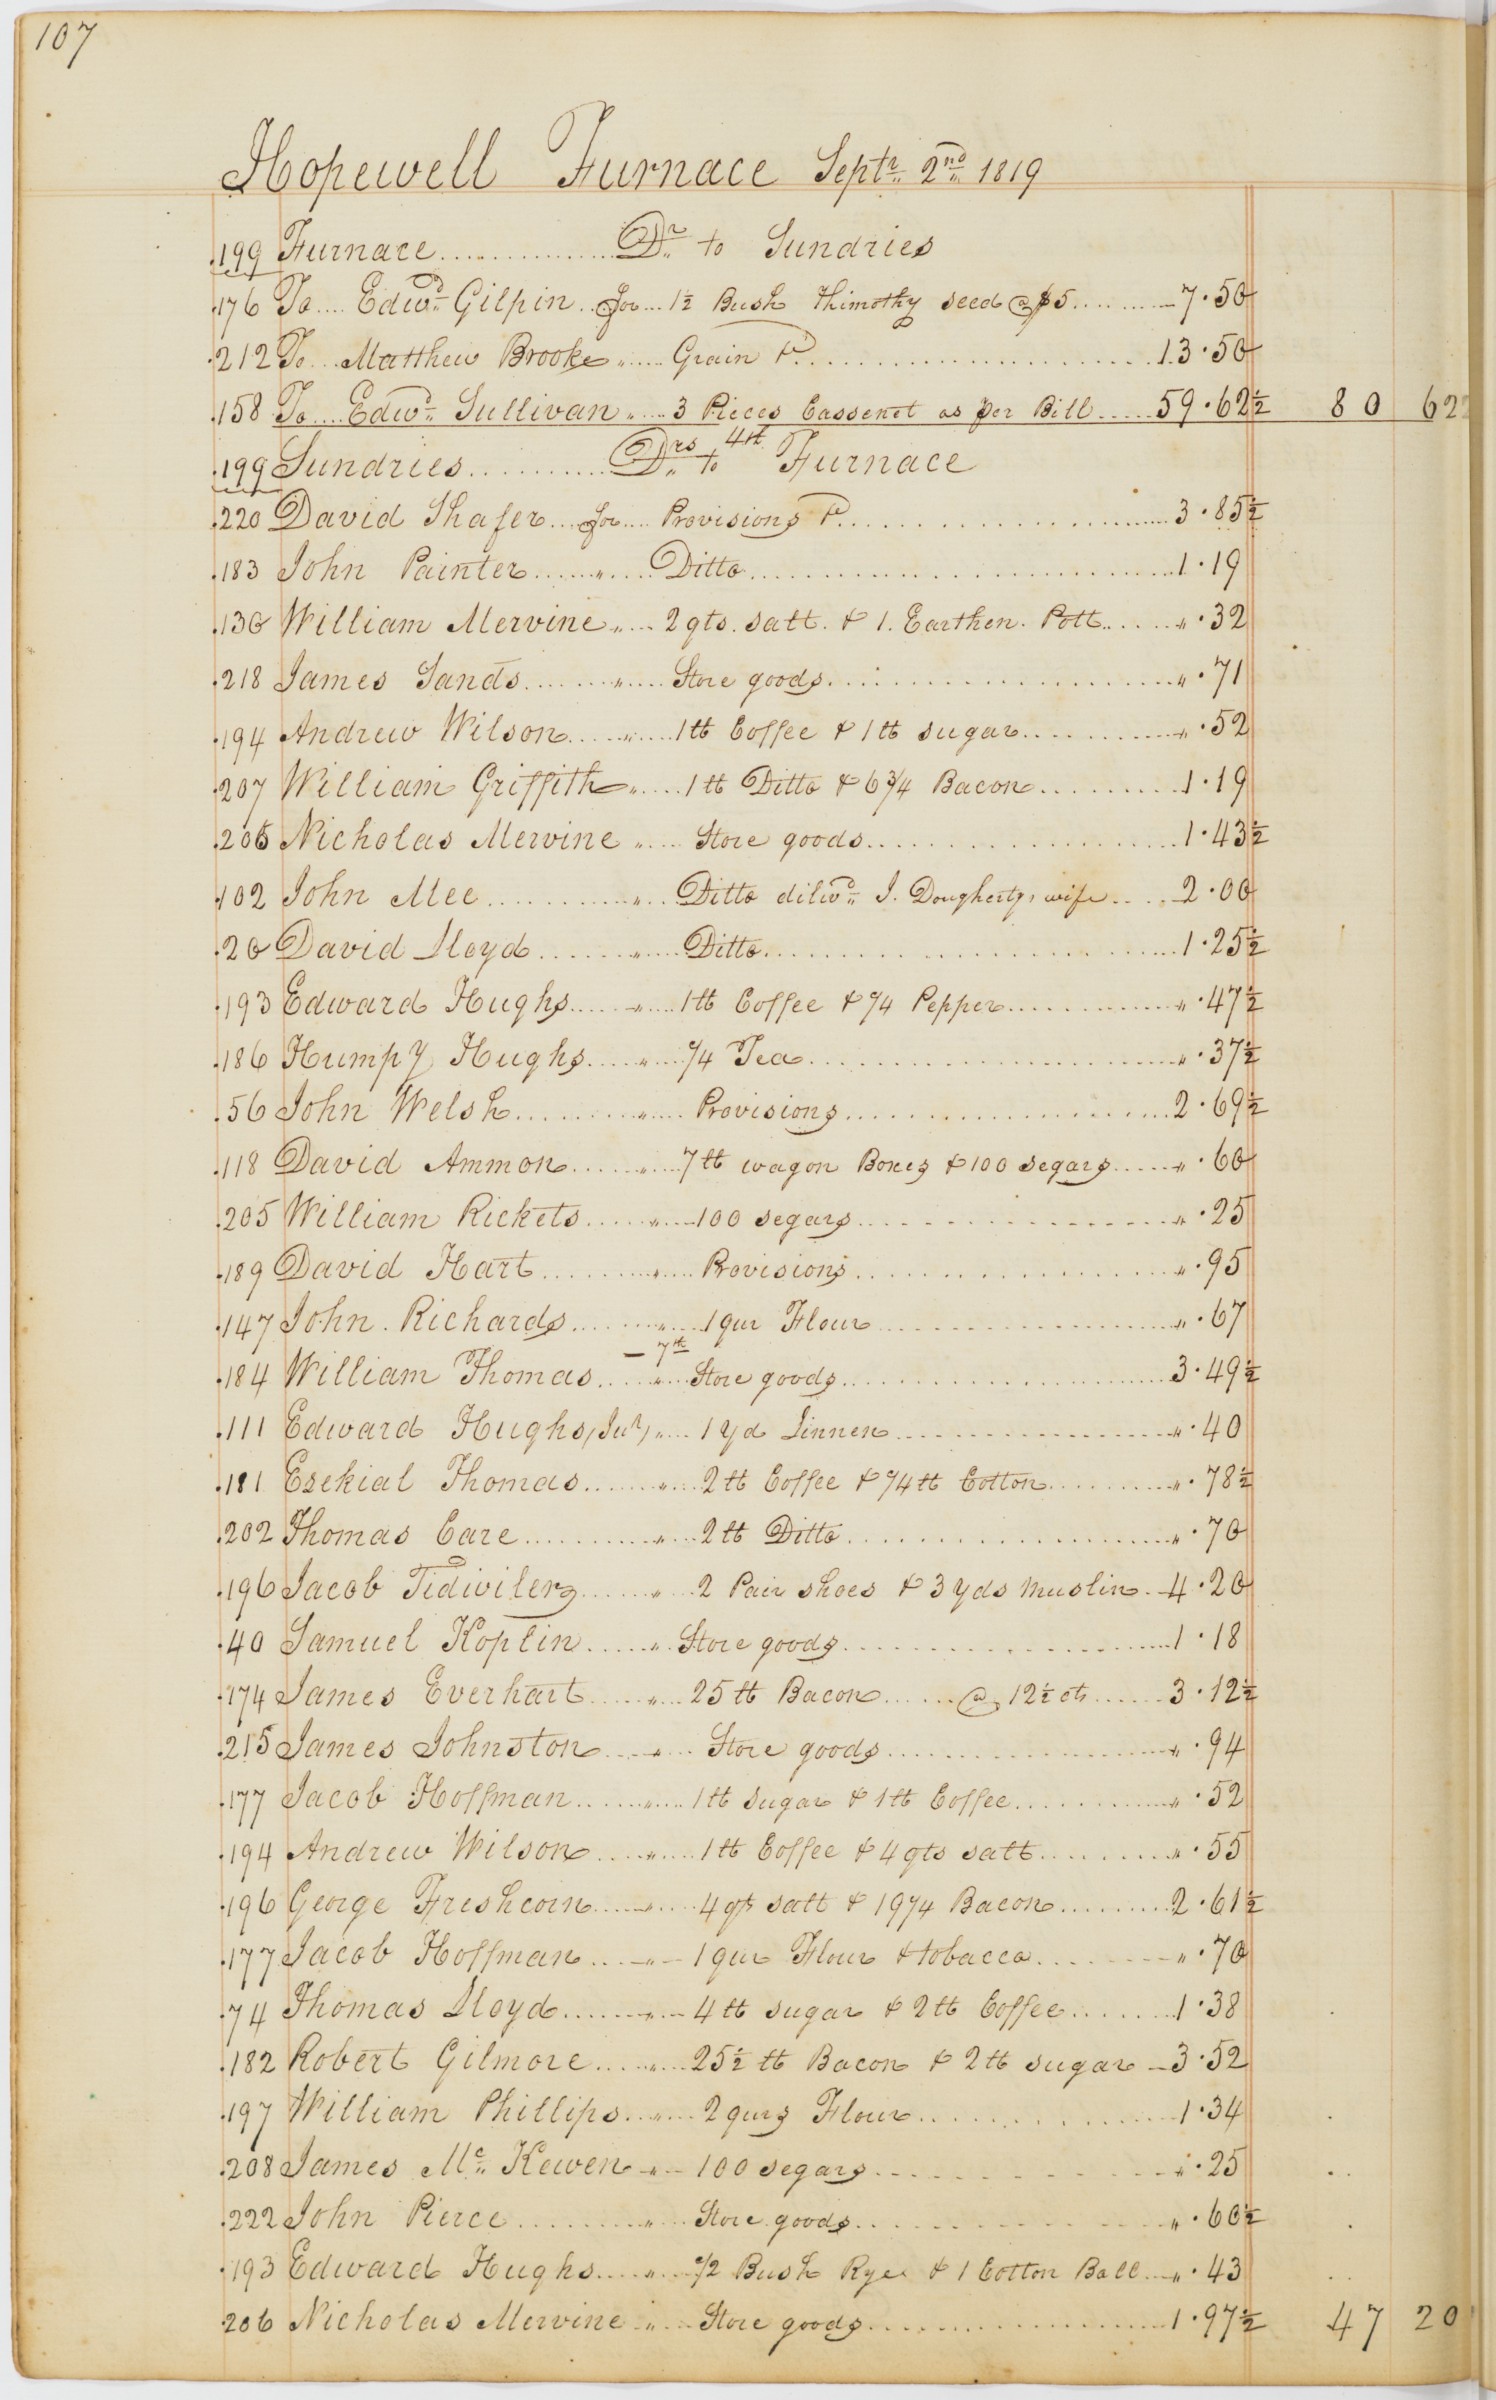 107
Hopewell Furnace Septr 2nd 1819
199 Furnace Dr to Sundries
176 To Edwd Gilpin for 1½ Bush Thimothy seed @ $5 7.50
212 To Matthew Brooke " Grain &c 13.50
158 To Edwd Sullivan " 3 Pieces Cassenet as per Bill 59.62½ 80 62
4th
199 Sundries Drs to Furnace
220 David Shafer for Provisions &c 3.85½
183 John Painter " Ditto 1.19
130 William Mervine " 2 qts. Salt. & 1. Earthen. Pott " .32
218 James Sands " Store goods " .71
194 Andrew Wilson " 1 lb Coffee & 1 lb sugar " .52
207 William Griffith " 1 lb Ditto & 6¾ Bacon 1.19
206 Nicholas Mervine " Store goods 1.43½
102 John Mee " Ditto dilivd J. Doughertys wife 2.00
20 David Lloyd " Ditto 1.25½
193 Edward Hughs " 1 lb Coffee & ¼ Pepper " .47½
186 Humpy Hughs " ¼ Tea " .37½
56 John Welsh " Provisions 2.69½
118 David Ammon " 7 lb wagon Boxes & 100 segars " .60
205 William Rickets " 100 segars " .25
189 David Hart " Provisions " .95
147 John Richards " 1 qur Flour " .67
7th
184 William Thomas " Store goods 3.49½
111 Edward Hughs, (Jur) " 1 yd Linnen " .40
181 Ezekial Thomas " 2 lb Coffee & ¼ lb Cotton " .78½
202 Thomas Care " 2 lb Ditto " .70
196 Jacob Tidwiler " 2 Pair shoes & 3 yds muslin 4.20
40 Samuel Koplin " Store goods 1.18
174 James Everhart " 25 lb Bacon @ 12½ cts 3.12½
215 James Johnston " Store goods " .94
177 Jacob Hoffman " 1 lb sugar & 1 lb Coffee " .52
194 Andrew Wilson " 1 lb Coffee & 4 qts salt " .55
196 George Freshcorn " 4 qts salt & 19¼ Bacon 2.61½
177 Jacob Hoffman " 1 qur Flour & tobacco " .70
74 Thomas Lloyd " 4 lb sugar & 2 lb Coffee 1.38
182 Robert Gilmore " 25½ lb Bacon & 2 lb sugar 3.52
197 William Phillips " 2 qurs Flour 1.34
208 James Mc Kewen " 100 segars " .25
222 John Pierce " Store goods " .60½
193 Edward Hughs " ½ Bush Rye & 1 Cotton Ball " .43
206 Nicholas Mervine " Store goods 1.97½ 47 20